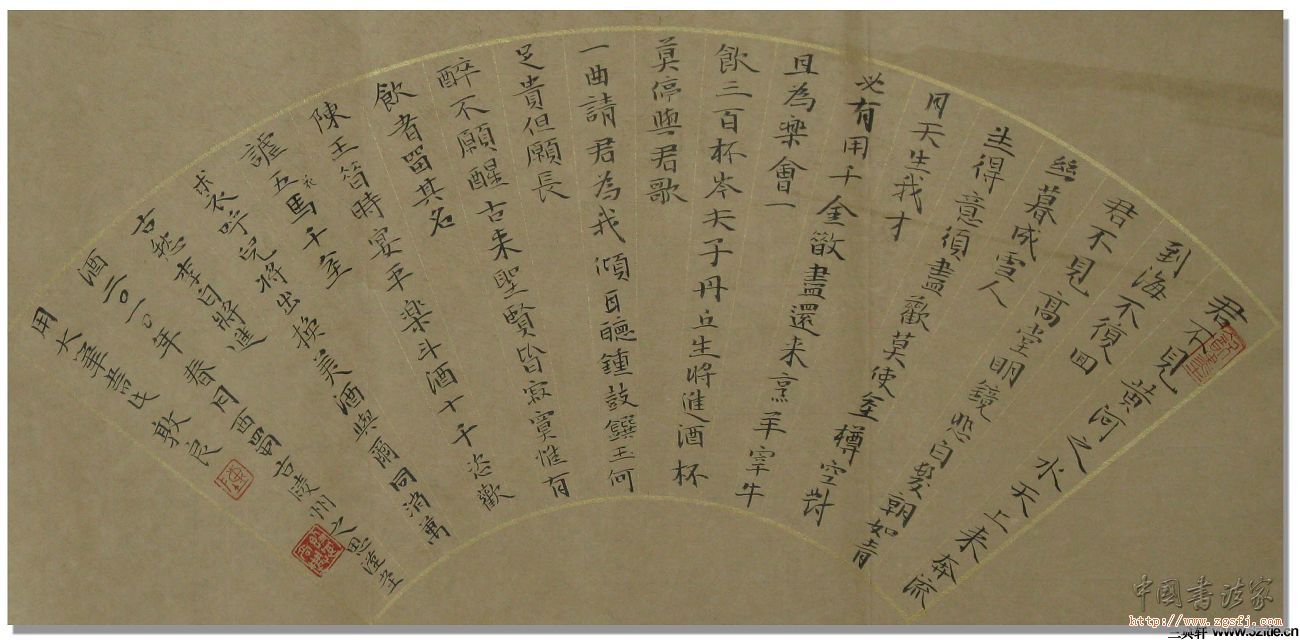 君不見黄河之水天上来奔流
到海不復回
君不見高堂明鏡悲白髮朝如青
絲暮成雪人
生得意須盡歡莫使金樽空對
月天生我才
必有用千金散盡還来烹羊宰牛
且為樂會一
飲三百杯岑夫子丹丘生將進酒杯
莫停與君歌
一曲請君為我傾耳聽鍾鼓饌玉何
足貴但願長
醉不願醒古来聖賢皆寂寞惟有
飲者留其名
陳王昔時宴平楽斗酒十千恣歡
謔五馬花千金
裘衣呼兒將出換美酒與爾同消萬
古愁李白將進
酒二〇一〇年春月西蜀古陵州之思
用大筆敦良
中國書法家
http://www.zgsfj.com
www.520de.cn